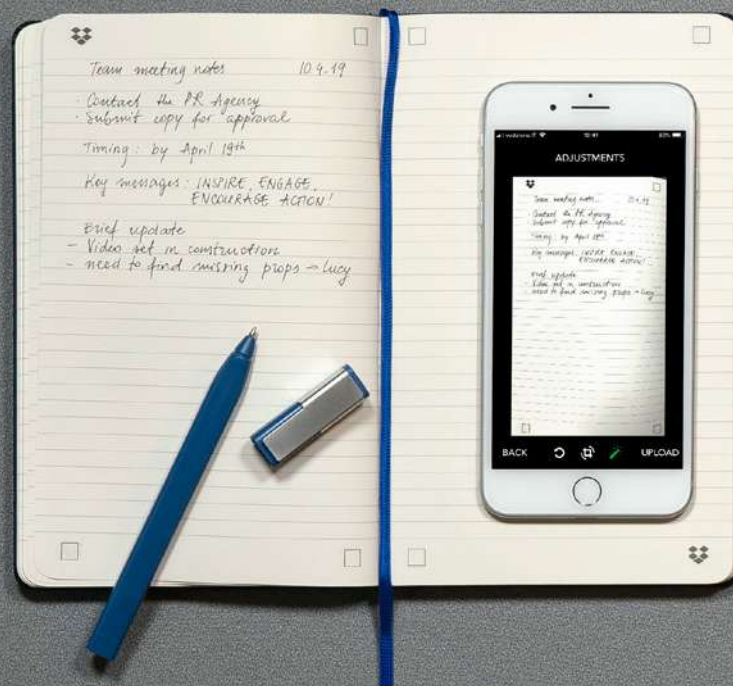 Team meeting notes 10.4.19
· Contact the PR Agency
· Submit copy for approval
Timing: by April 19th
Key messages: INSPIRE, ENGAGE,
ENCOURAGE ACTION!
Brief update
- Video set in construction
- need to find missing props → Lucy
ADJUSTMENTS
Team meeting notes 10.4.19
· Contact the PR Agency
· Submit copy for approval
Timing: by April 19th
Key messages: INSPIRE, ENGAGE,
ENCOURAGE ACTION!
Brief update
- Video set in construction
- need to find missing props → Lucy
BACK UPLOAD